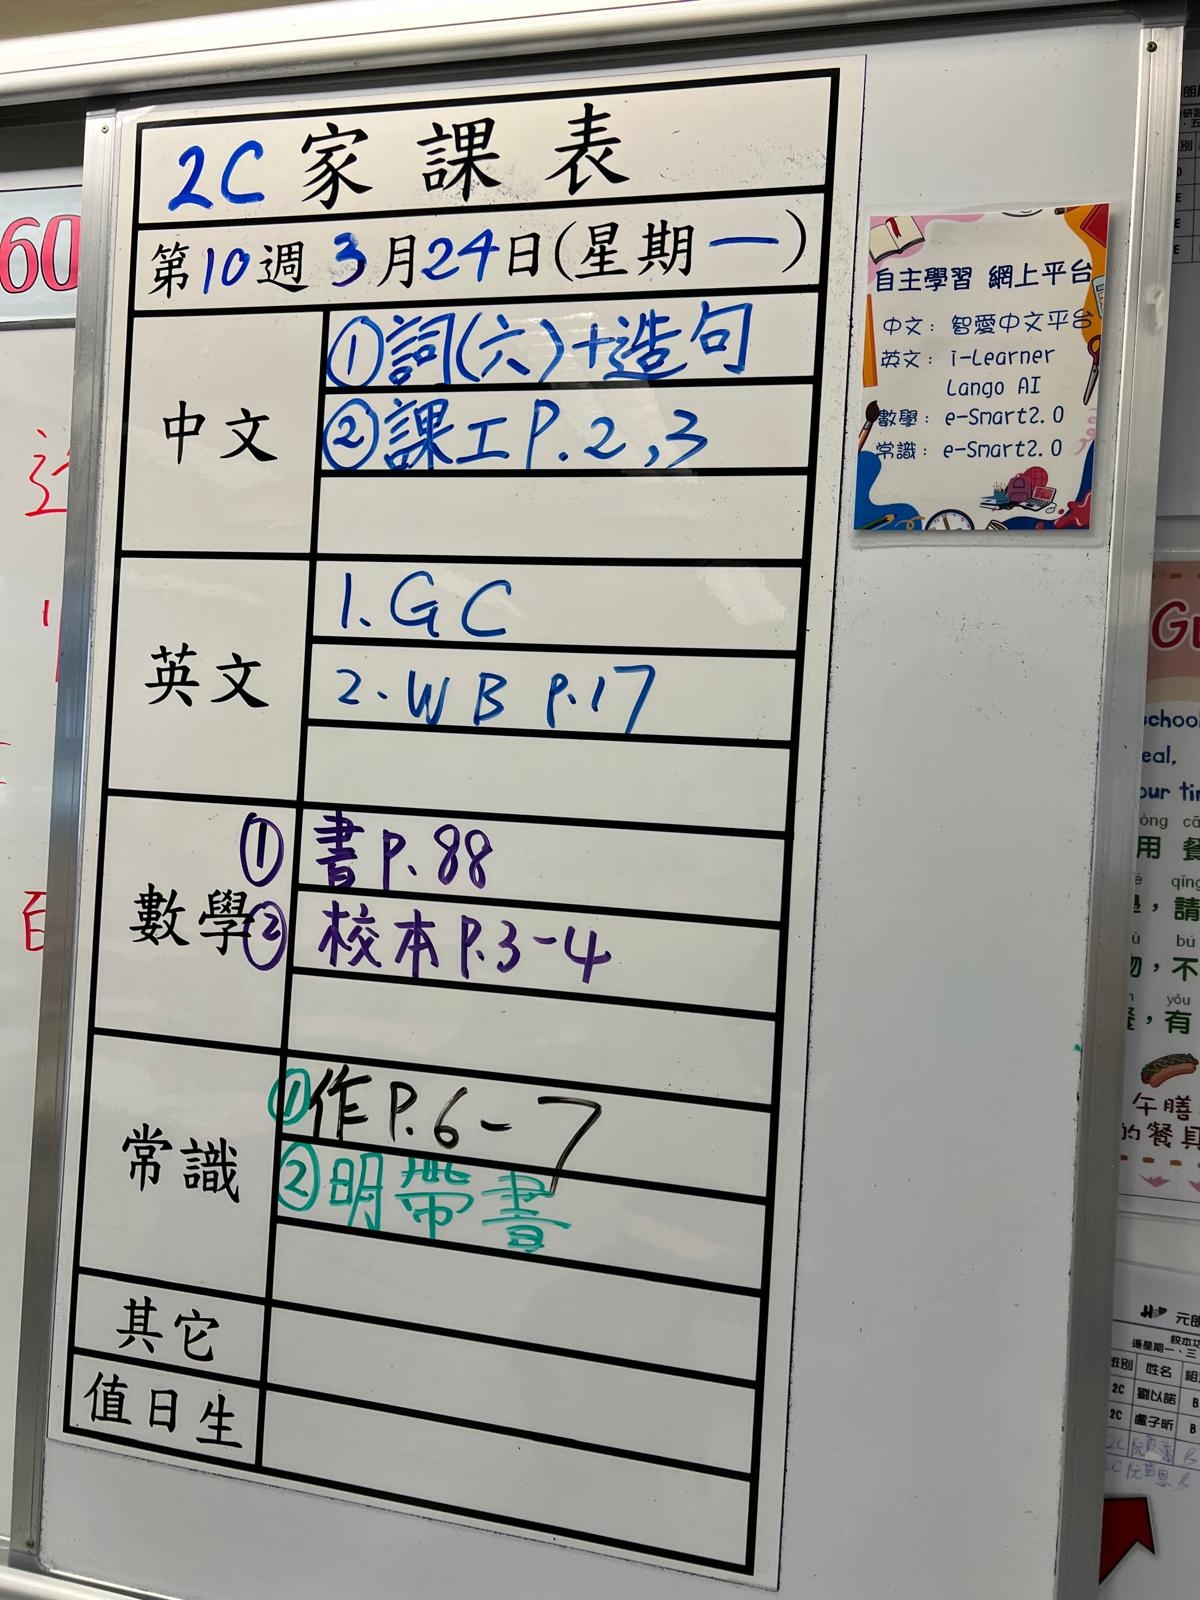 2C家課表
第10週 3月24日(星期一)
中文
①詞(六)+造句
②課工P.2,3
英文
1.GC
2.WB P.17
數學
①書P.88
②校本P.3-4
常識
①作P.6-7
②明帶書
其它
值日生
自主學習 網上平台
中文: 智愛中文平台
英文: i-Learner
Lango AI
數學: e-Smart2.0
常識: e-Smart2.0
60
school
eal,
our
用 餐
qǐng
，請
bù
，不
yǒu
，有
午膳
的餐具
元朗
逢星期一、三
班別 姓名
2C 劉以諾 B
2C 盧子昕 B